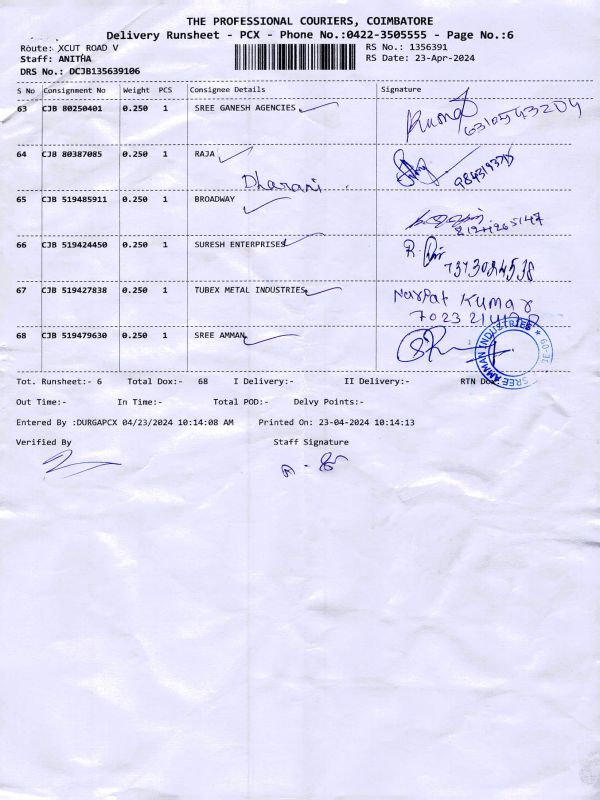 THE PROFESSIONAL COURIERS, COIMBATORE
Delivery Runsheet - PCX - Phone No.:0422-3505555 - Page No.:6
Route: XCUT ROAD V RS No.: 1356391
Staff: ANITHA RS Date: 23-Apr-2024
DRS No.: DCJB135639106
S No Consignment No Weight PCS Consignee Details Signature
63 CJB 80250401 0.250 1 SREE GANESH AGENCIES
Kumar
6310543204
64 CJB 80387085 0.250 1 RAJA
Dharani
65 CJB 519485911 0.250 1 BROADWAY
66 CJB 519424450 0.250 1 SURESH ENTERPRISES
R.
7373084538
67 CJB 519427838 0.250 1 TUBEX METAL INDUSTRIES
Narpat Kumar
68 CJB 519479630 0.250 1 SREE AMMAN
SREE AMMAN INDUSTRIES
Tot. Runsheet:- 6 Total Dox:- 68 I Delivery:- II Delivery:- RTN
Out Time:- In Time:- Total POD:- Delvy Points:-
Entered By :DURGAPCX 04/23/2024 10:14:08 AM Printed On: 23-04-2024 10:14:13
Verified By Staff Signature